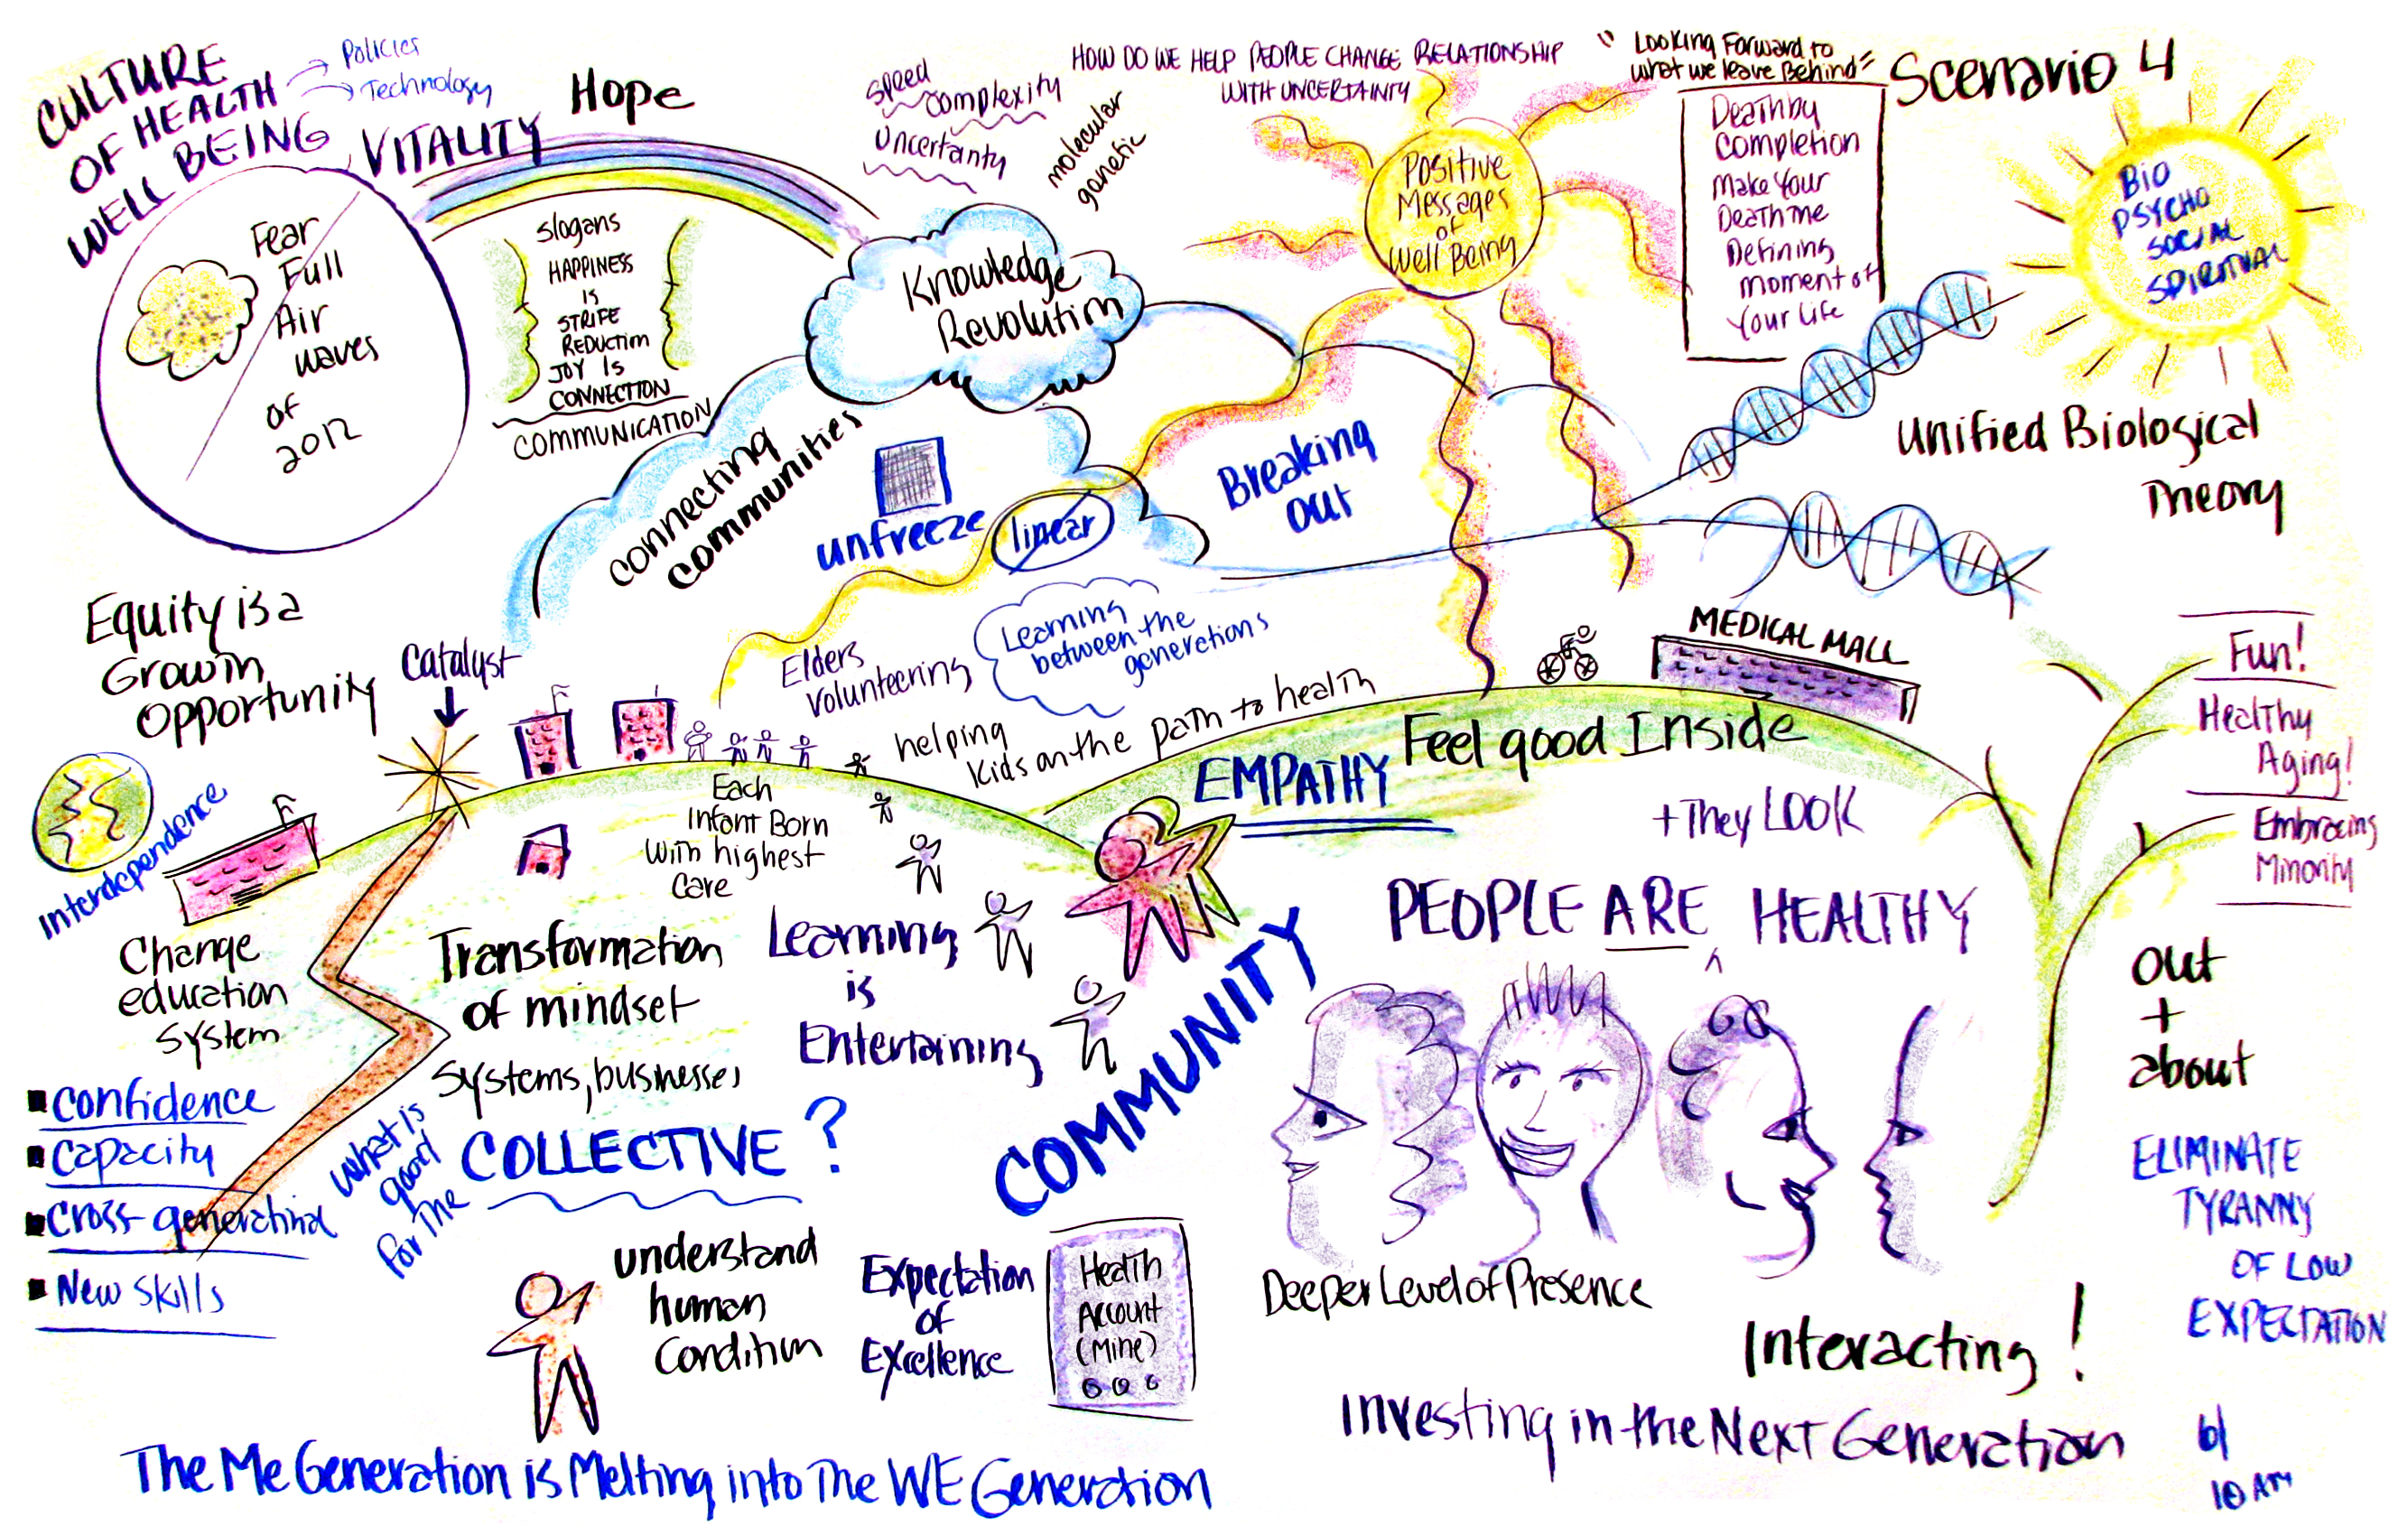 CULTURE
OF HEALTH
WELL BEING
Policies
Technology
VITALITY
Hope
Fear
Full
Air
waves
of
2012
Slogans
HAPPINESS
IS
STRIFE
REDUCTION
JOY IS
CONNECTION
COMMUNICATION
speed
complexity
uncertanty
molecular
genetic
HOW DO WE HELP PEOPLE CHANGE RELATIONSHIP
WITH UNCERTAINTY
Knowledge
Revolution
Positive
Messages
of
Well Being
"Looking Forward to
what we leave Behind"
Death by
Completion
Make Your
Death the
Defining
moment of
Your Life
Scenario 4
BIO
PSYCHO
SOCIAL
SPIRITUAL
Unified Biological
Theory
connecting
communities
unfreeze
linear
Breaking
out
Equity is a
Growth
Opportunity
Catalyst
Interdependence
Elders
volunteering
Learning
between the
generations
helping
kids on the path to health
MEDICAL MALL
Fun!
Healthy
Aging!
Embracing
Minority
Each
Infant Born
With highest
Care
EMPATHY
Feel good Inside
+ They LOOK
PEOPLE ARE ^ HEALTHY
Change
education
system
Transformation
of mindset
Systems, businesses
Learning
is
Entertaining
COMMUNITY
out
+
about
Confidence
Capacity
Cross-generational
New Skills
What is
good
for The
COLLECTIVE?
understand
human
Condition
Expectation
of
Excellence
Health
Account
(Mine)
Deeper Level of Presence
Interacting!
ELIMINATE
TYRANNY
OF LOW
EXPECTATION
Investing in the Next Generation
The Me Generation is Melting into The WE Generation
10 AM